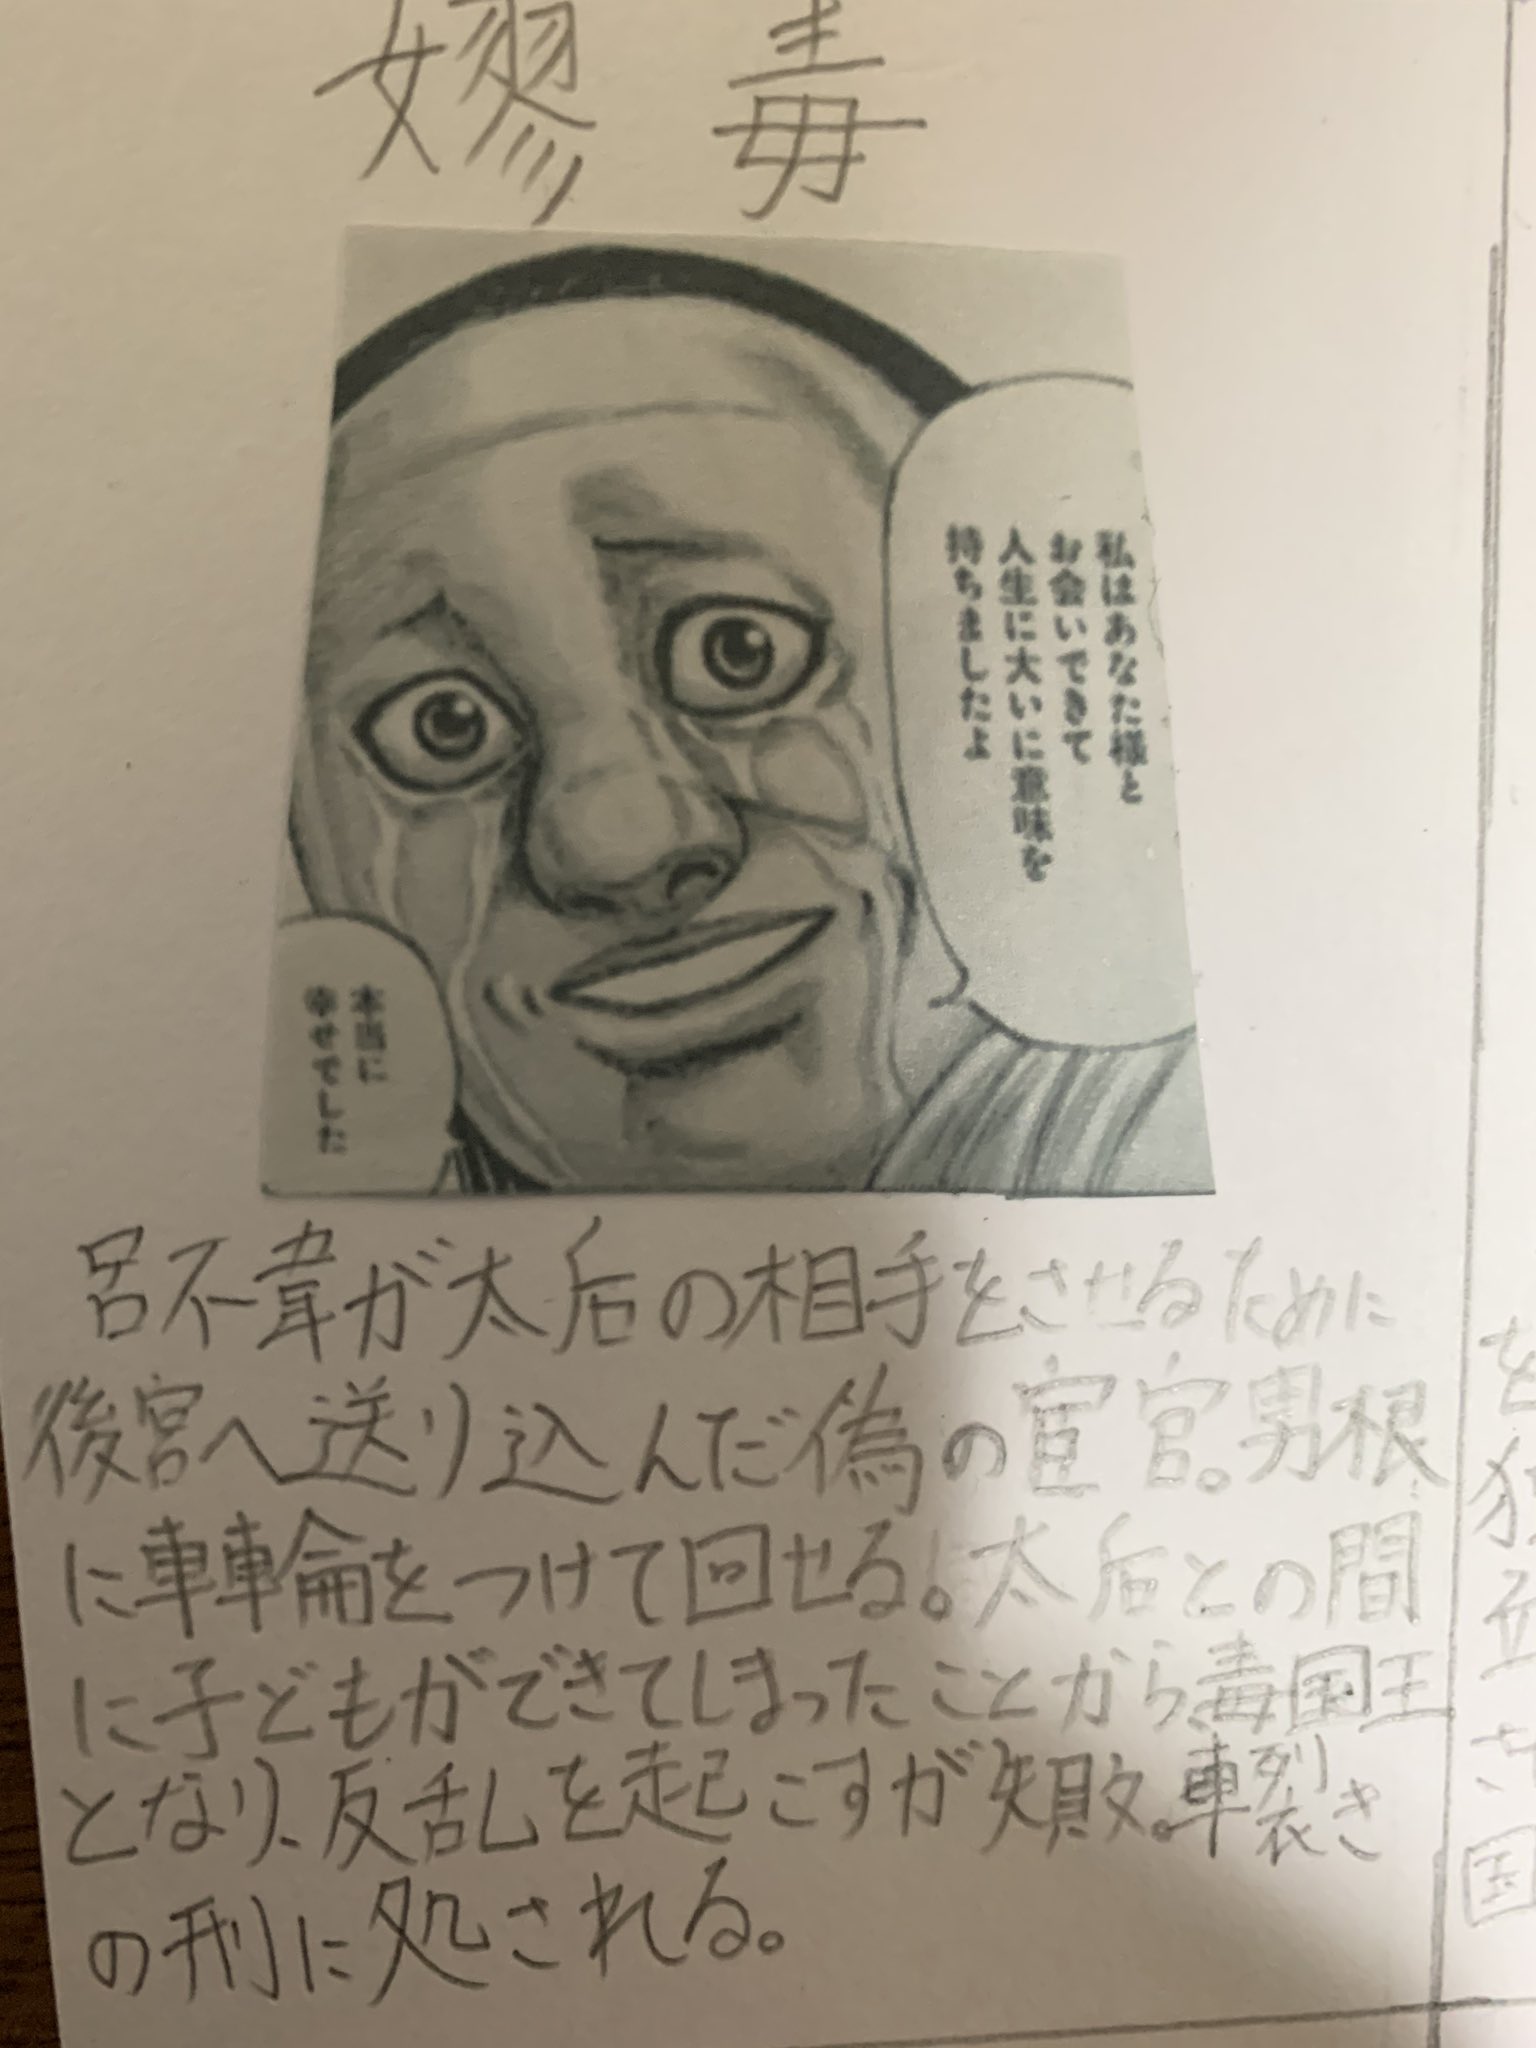 嫪毐
私はあなた様と
お会いできて
人生に大いに意味を
持ちましたよ
本当に
幸せでした
呂不韋が太后の相手をさせるために
後宮へ送り込んだ偽の宦官。男根
に車輪をつけて回せる。太后との間
に子どもができてしまったことから毐国王
となり、反乱を起こすが失敗。車裂き
の刑に処される。
を独立さ
国